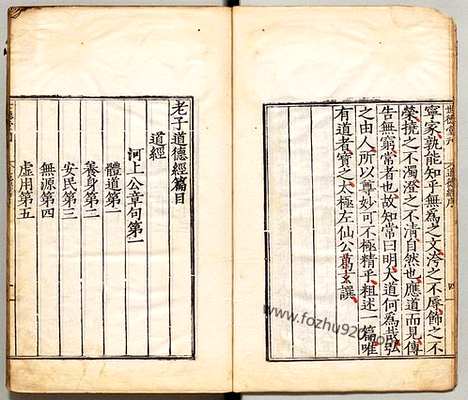 寧家孰能知乎無為之文洿之不辱飾之不
榮撓之不濁澄之不清自然也應道而見傳
告無窮常者也故知常曰明大道何為哉弘
之由人所以尊妙可不極精乎粗述一篇唯
有道者寶之太極左仙公葛玄譔
老子道德經篇目
道經
河上公章句第一
體道第一
養身第二
安民第三
無源第四
虛用第五
www.fozhu920.com